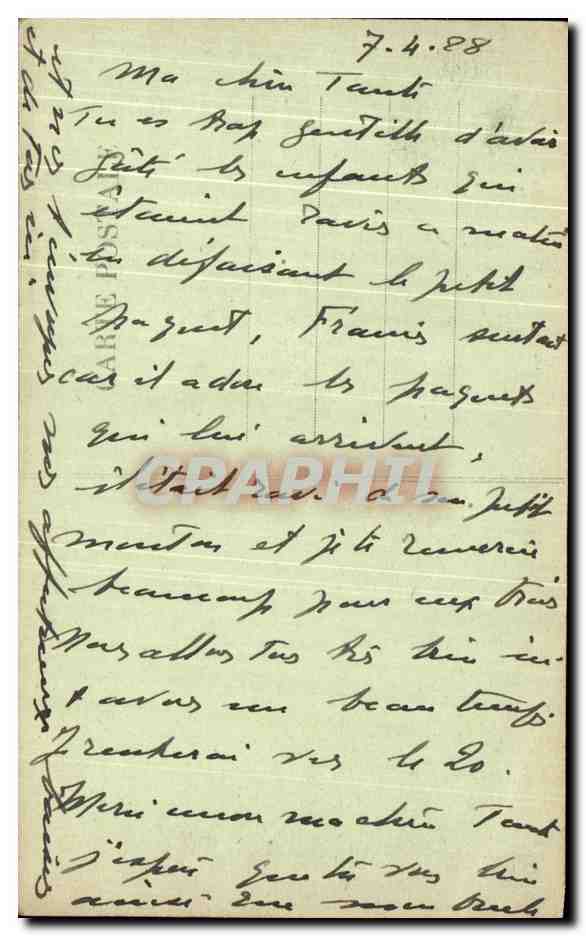 7.4.88
Ma chère Tante
Tu es trop gentille d'avoir
gâté les enfants qui
étaient ravis ce matin
en défaisant le petit
paquet, Francis surtout
car il adore les paquets
qui lui arrivent,
il était ravi de son petit
mouton et je te remercie
beaucoup pour eux trois
Nous allons tous très bien ici
& avons un beau temps.
Je rentrerai vers le 20.
Merci encore ma chère Tante
j'espère que tu vas bien
ainsi que mon oncle
et nous t'envoyons nos affectueux baisers
et de
CARTE POSTALE
CPAPHIL